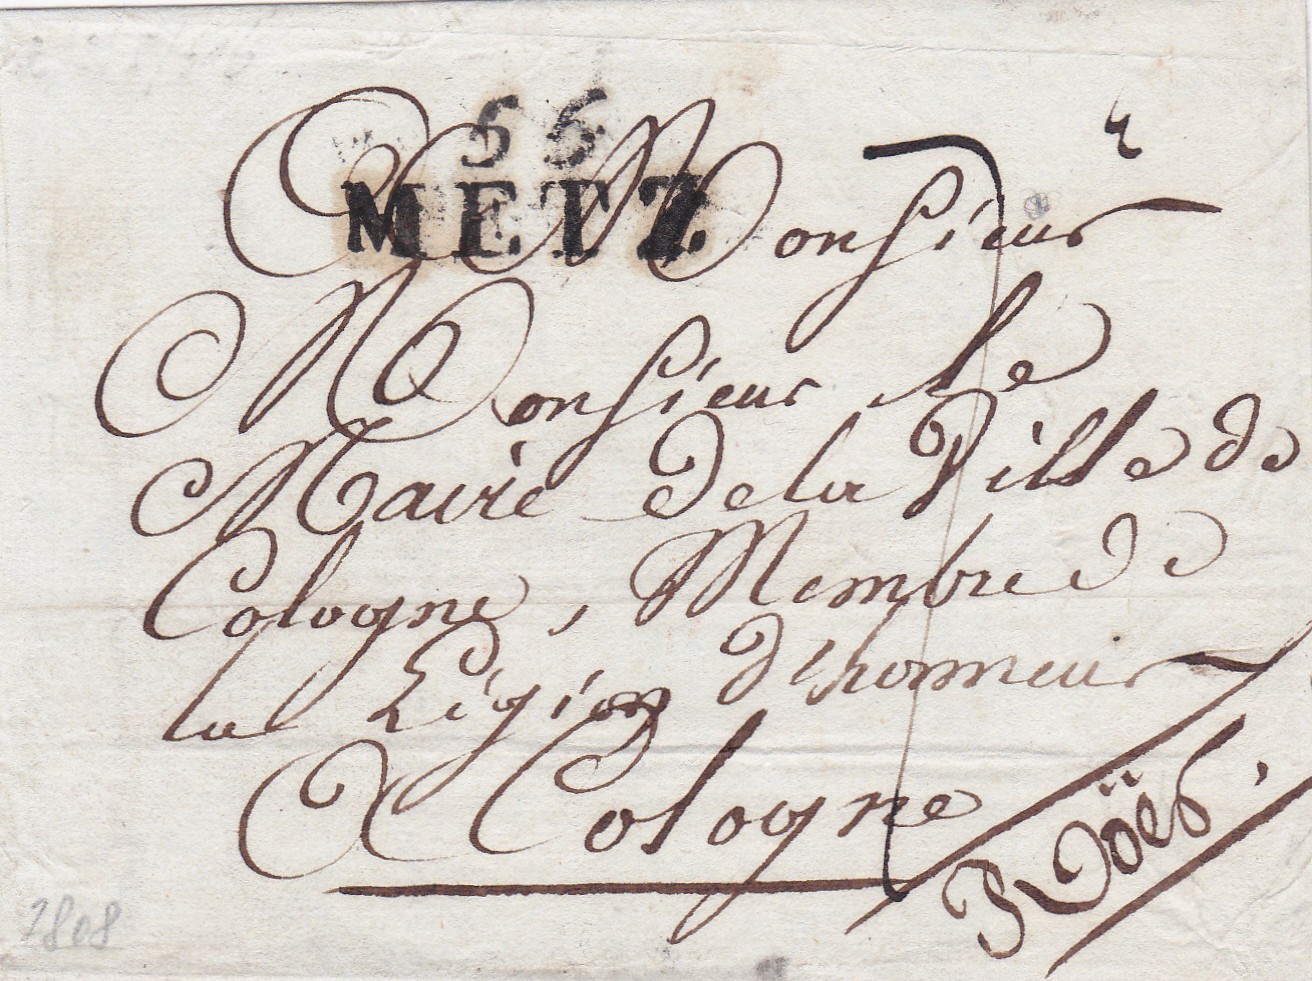 55
METZ
Monsieur
Monsieur Le
Maire de la Ville de
Cologne, Membre de
la Légion d'honneur
Cologne
1808